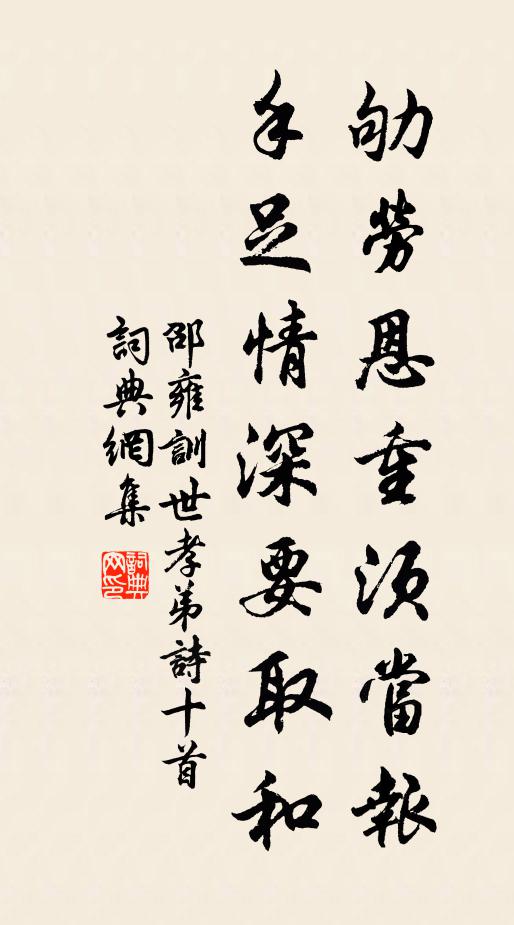 劬勞恩重須當報
手足情深要取和
邵雍訓世孝弟詩十首
詞典網集
詞典網印